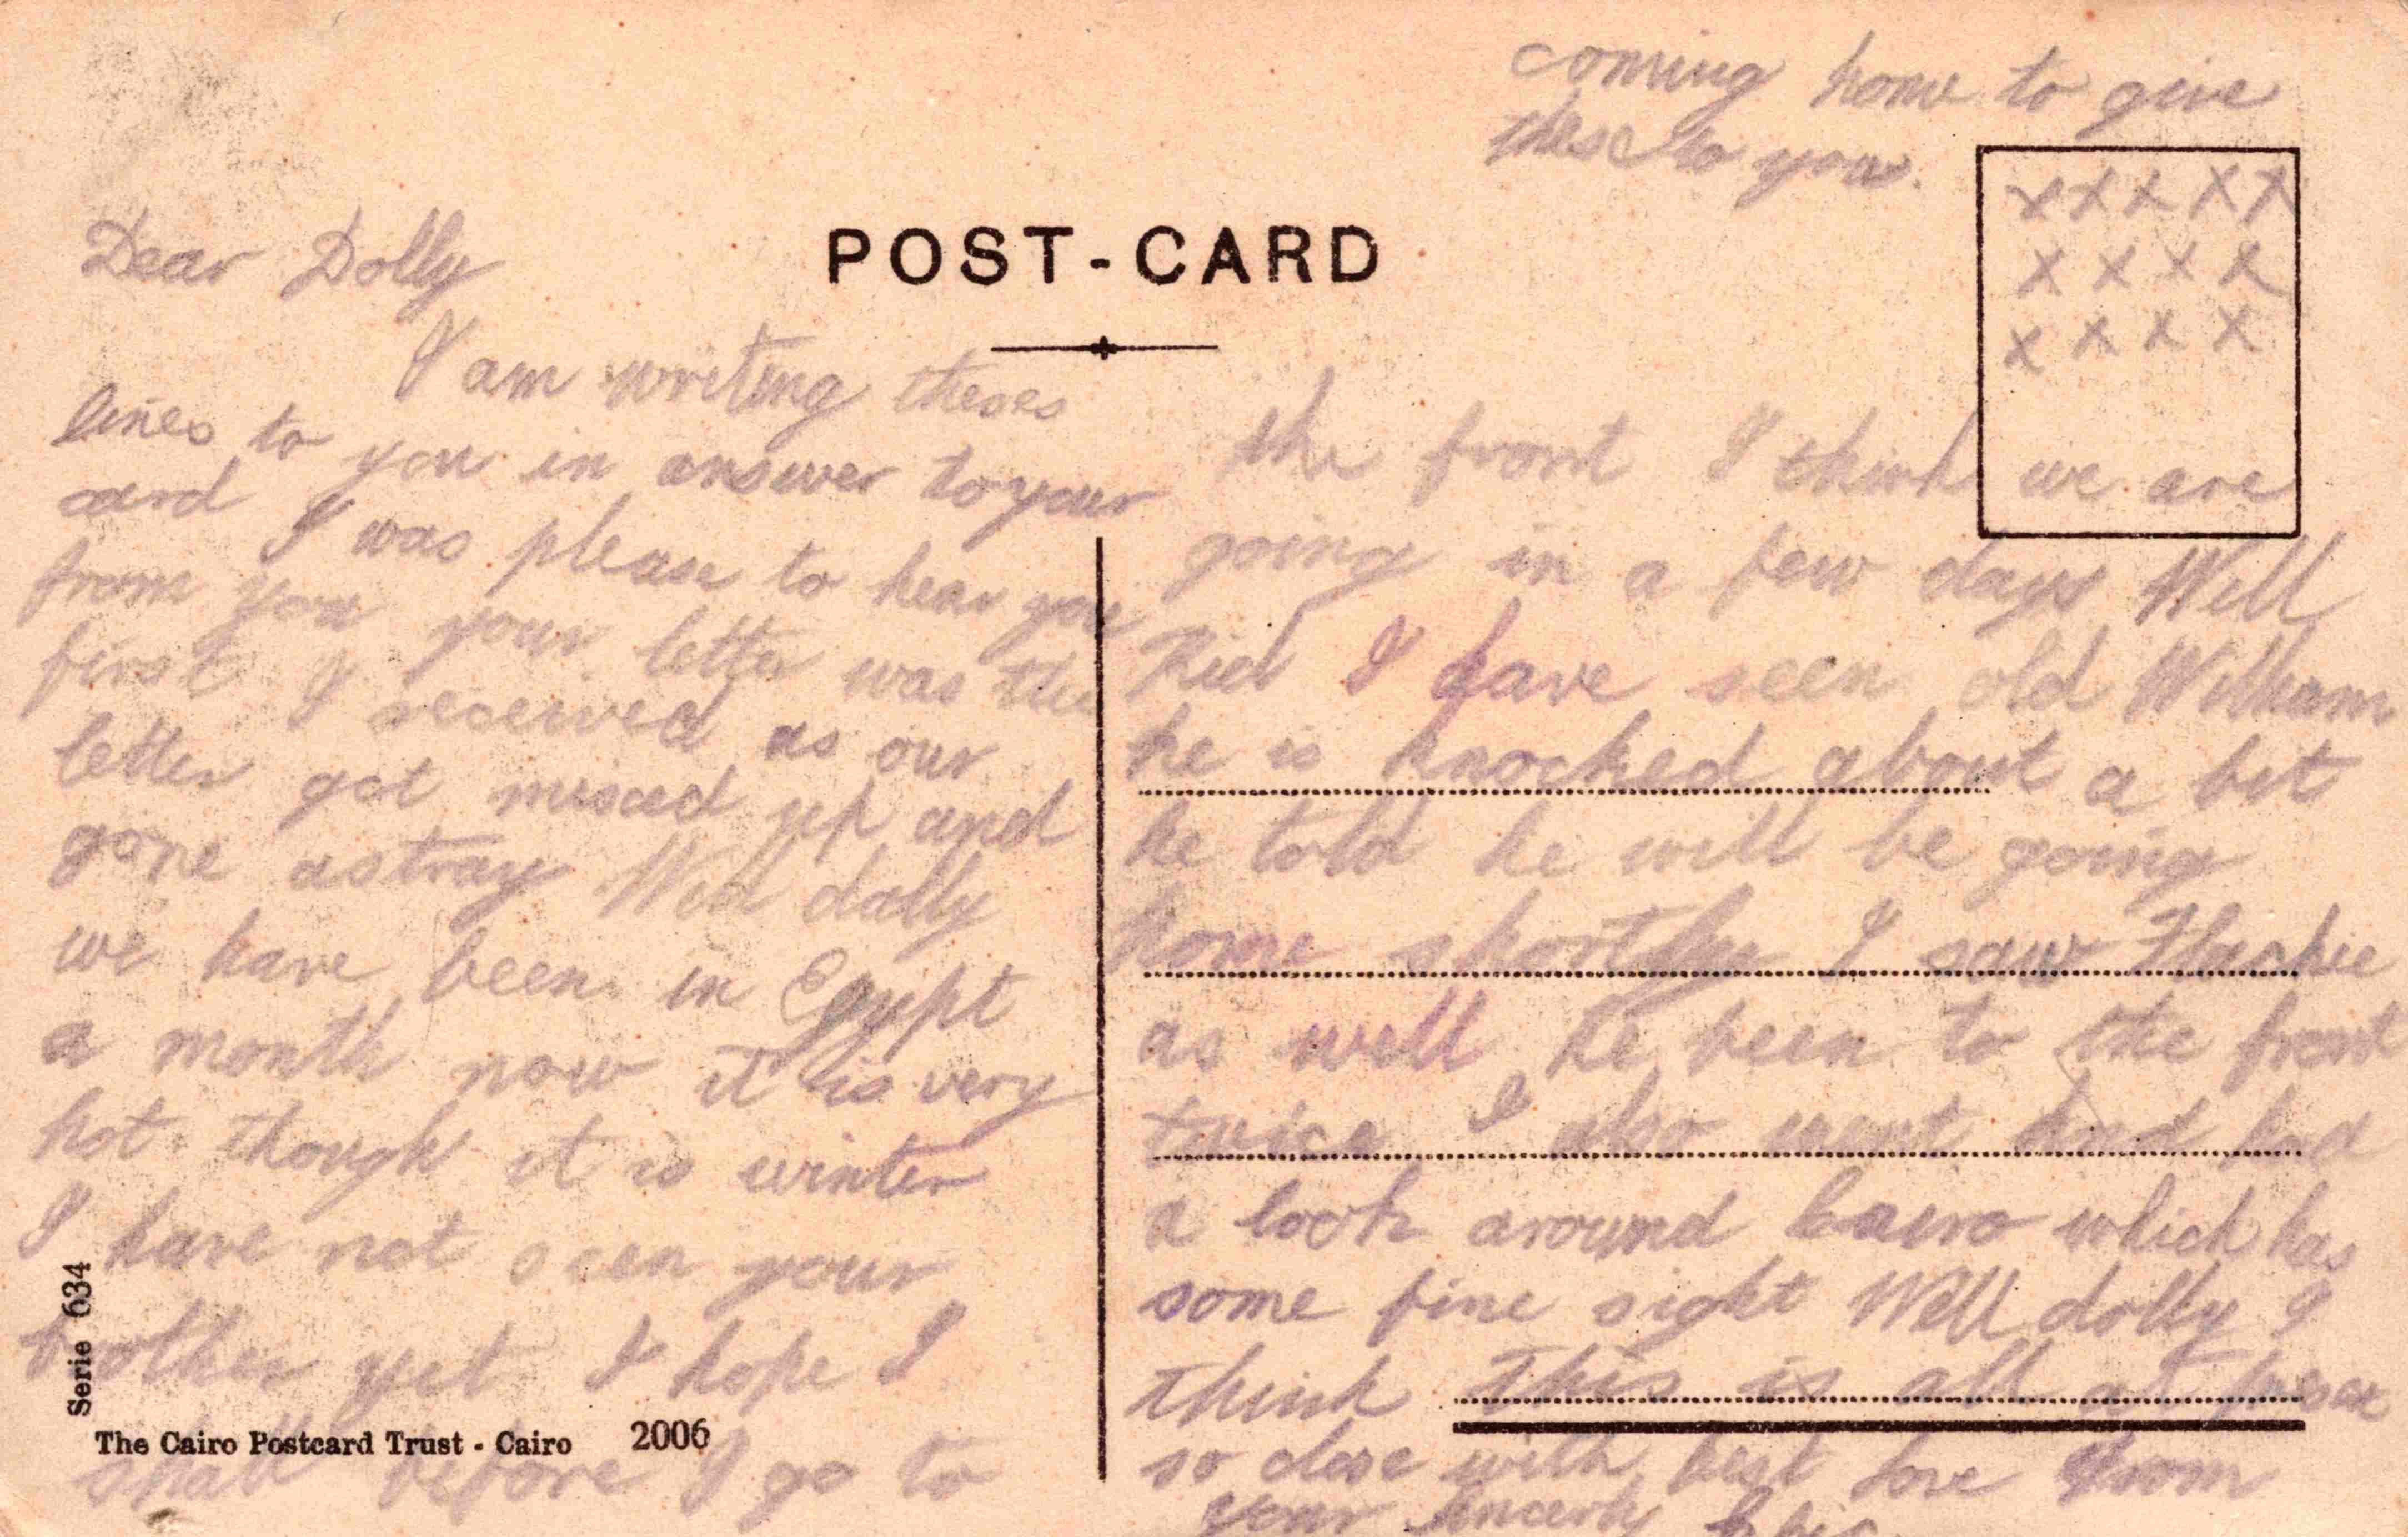 POST-CARD
Dear Dolly
I am writing theses
lines to you in answer to your
card I was please to hear you
from you your letter was the
first I received as our
letter got mixed up and
gone astray Well dolly
we have been in Egypt
a month now it is very
hot though it is winter
I have not seen your
brother yet I hope I
shall before I go to
the front I think we are
going in a few days Well
Kid I have seen old William
he is knocked about a bit
he told he will be going
home shortly I saw
as well he been to the front
twice I also went and had
a look around Cairo which has
some fine sight Well dolly I
think this is all at
so close with best love from
your
coming home to give
these to you.
x x x x x
x x x x
x x x x
Serie 634
The Cairo Postcard Trust - Cairo 2006